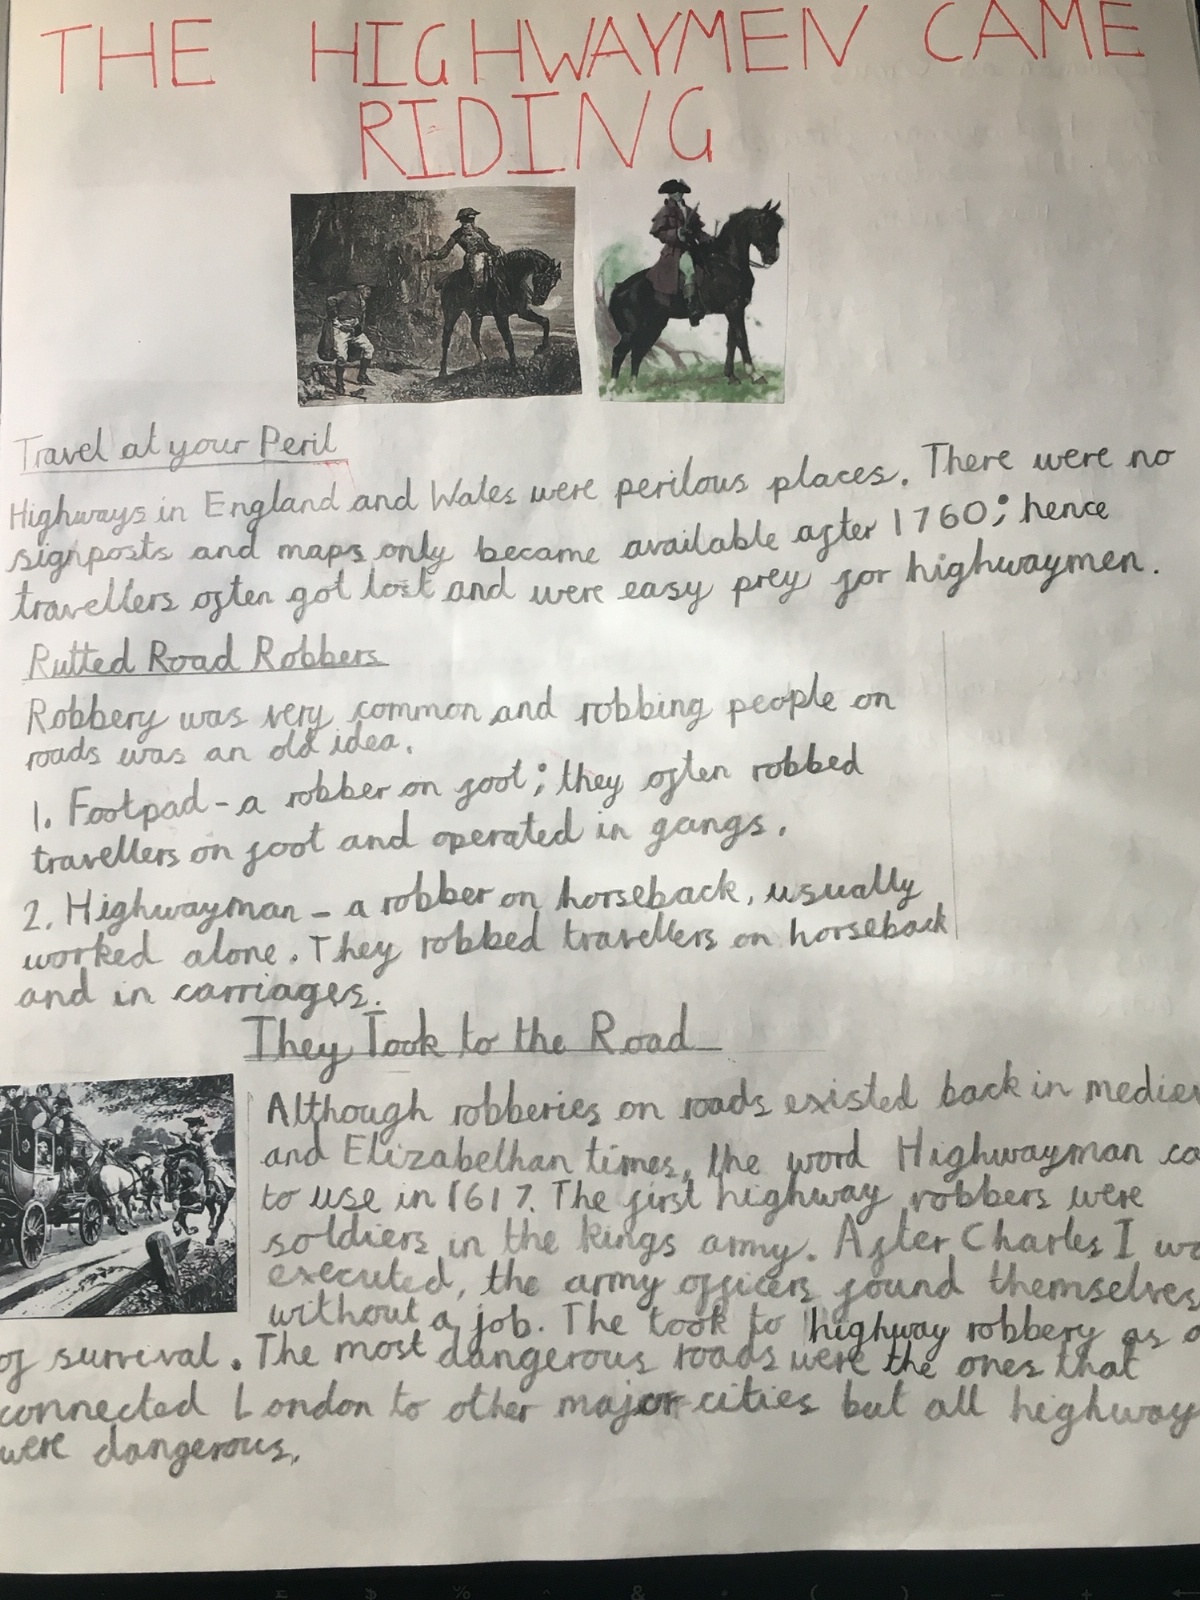 THE HIGHWAYMEN CAME
RIDING
Travel at your Peril
Highways in England and Wales were perilous places. There were no
signposts and maps only became available after 1760; hence
travellers often got lost and were easy prey for highwaymen.
Rutted Road Robbers
Robbery was very common and robbing people on
roads was an old idea.
1. Footpad - a robber on foot; they often robbed
travellers on foot and operated in gangs.
2. Highwayman - a robber on horseback, usually
worked alone. They robbed travellers on horseback
and in carriages.
They Took to the Road
Although robberies on roads existed back in medie
and Elizabethan times, the word Highwayman ca
to use in 1617. The first highway robbers were
soldiers in the kings army. After Charles I wa
executed, the army officers found themselves
without a job. The took to highway robbery as a
of survival. The most dangerous roads were the ones that
connected London to other major cities but all highway
were dangerous.